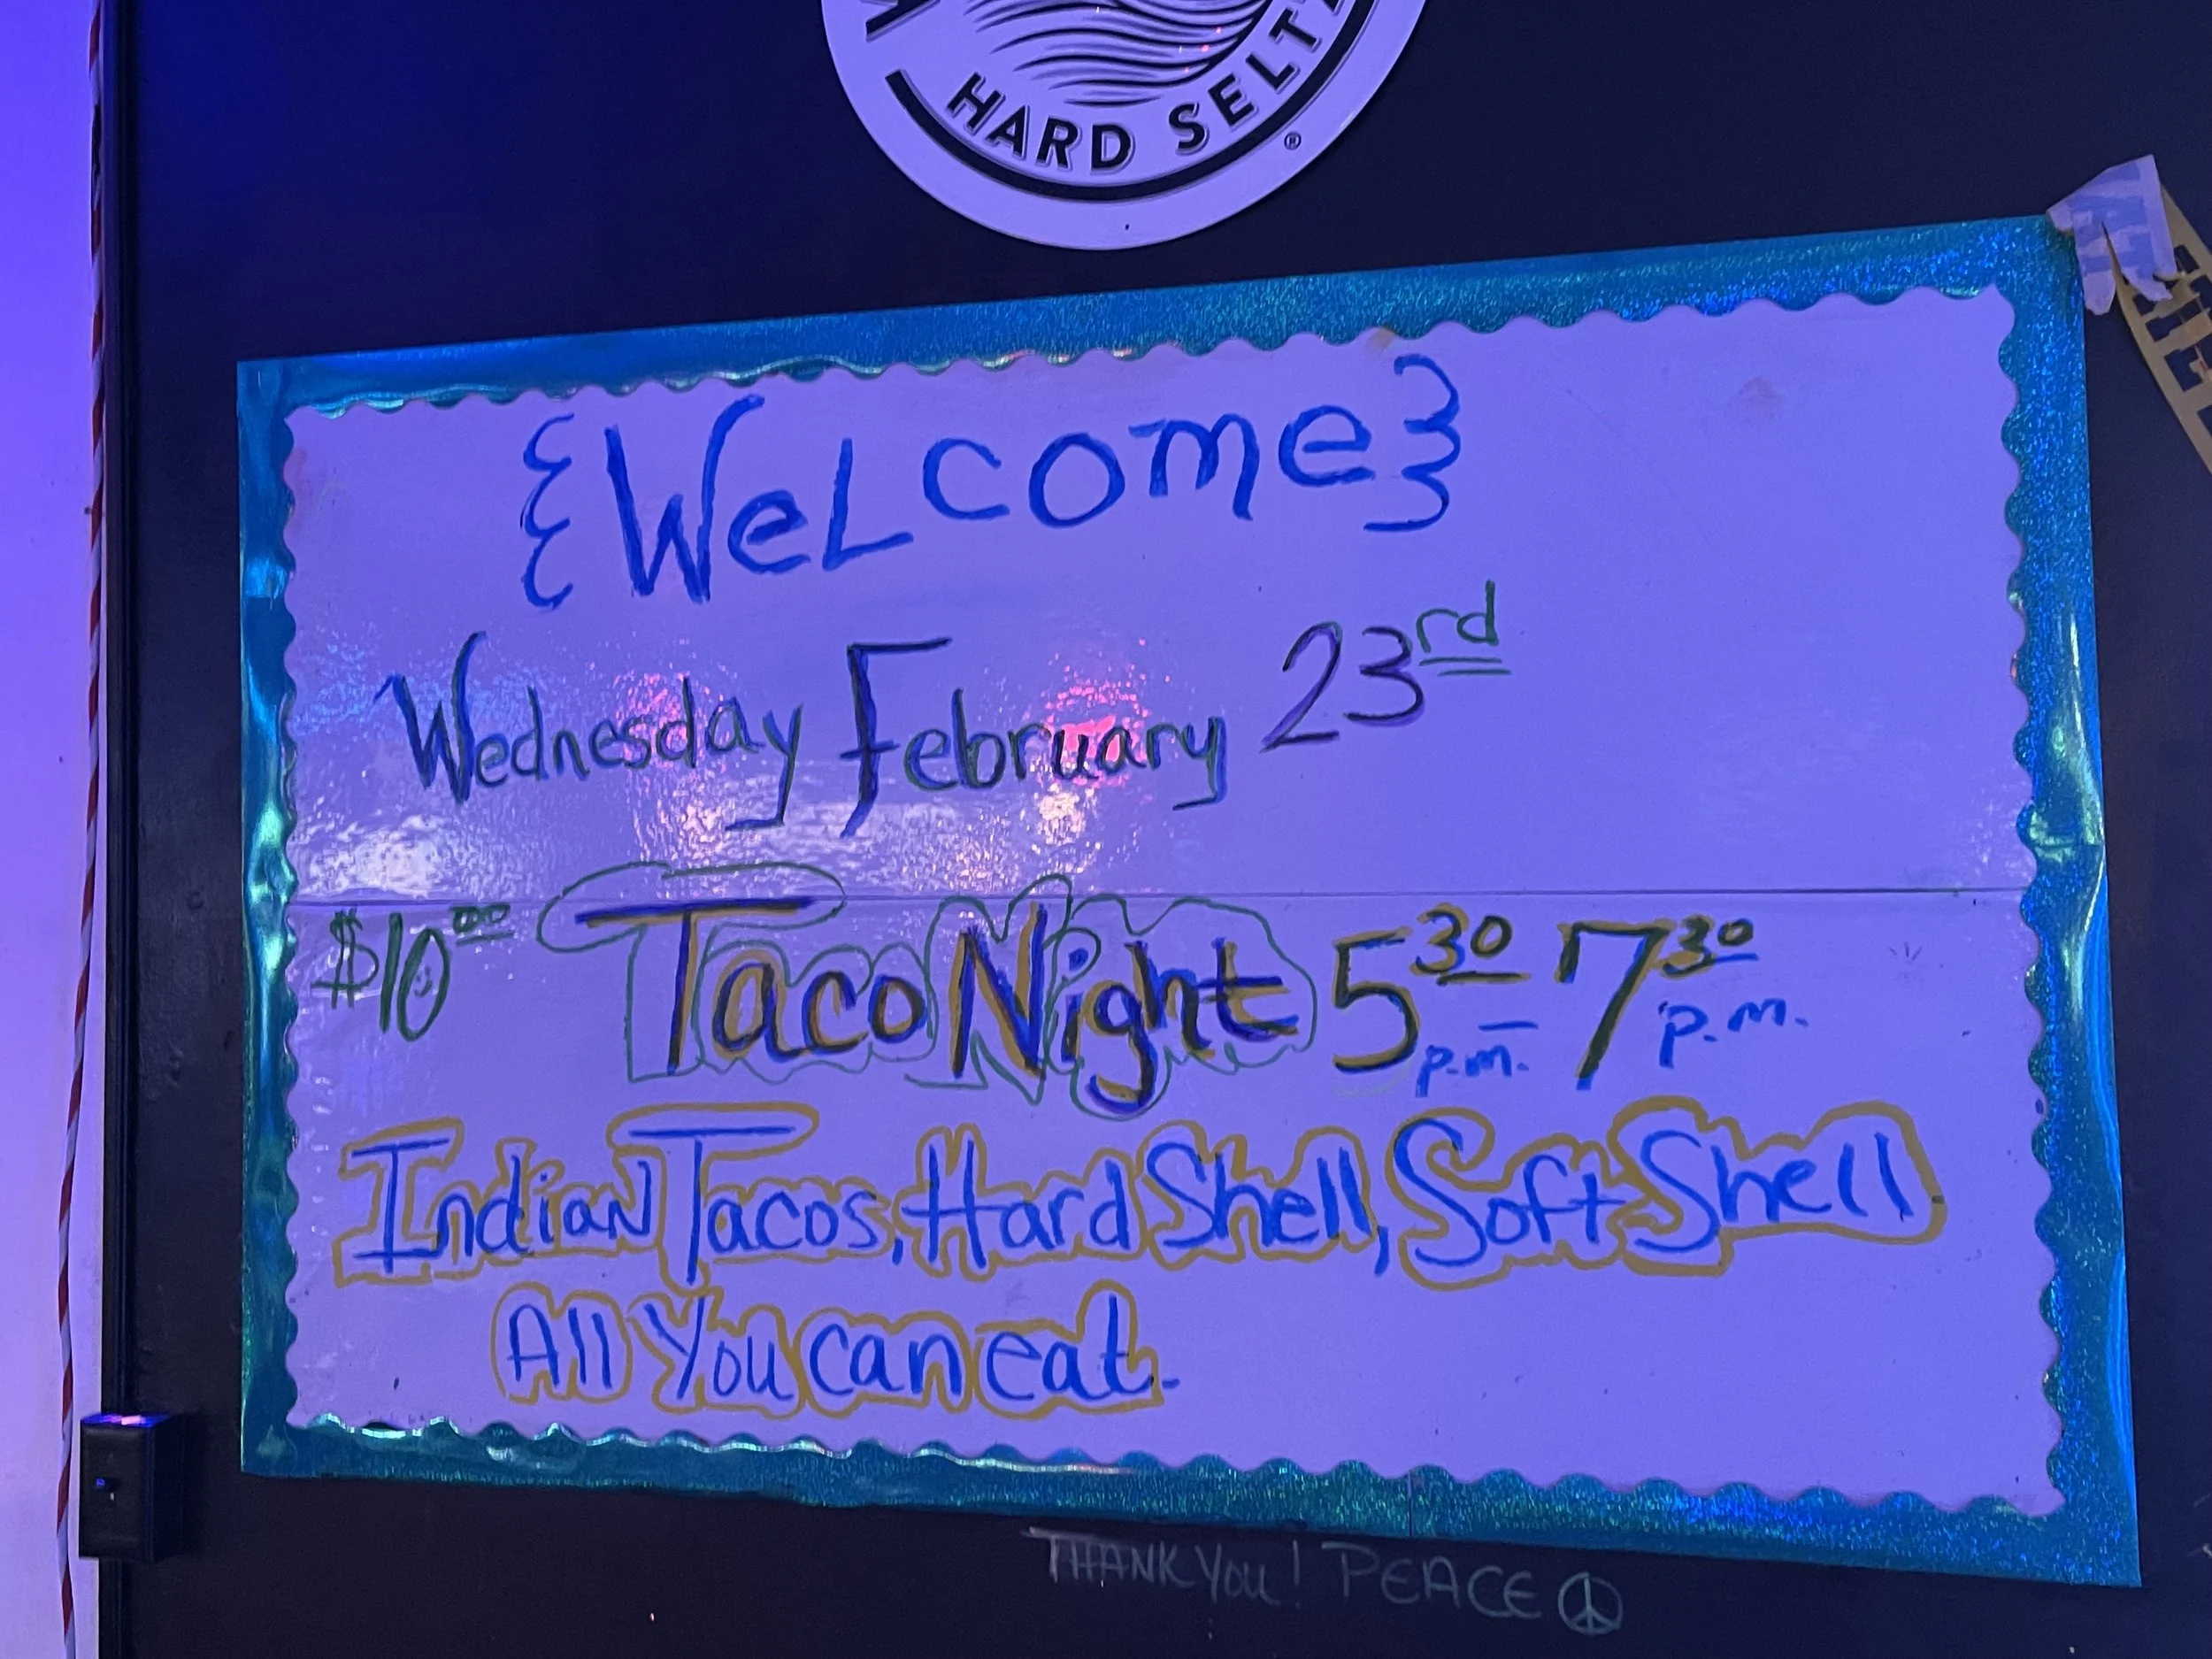 HARD SELT
{Welcome}
Wednesday February 23rd
$10.00 Taco Night 5 30 p.m. - 7 30 p.m.
Indian Tacos, Hard Shell, Soft Shell
All You can eat.
THANK YOU! PEACE